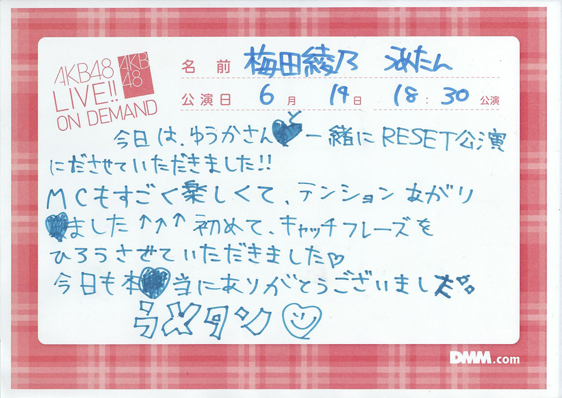 AKB48
LIVE!!
ON DEMAND
AKB
48
名前 梅田綾乃 うめたん
公演日 6月 19日 18:30 公演
今日は、ゆうかさんと一緒にRESET公演
にださせていただきました!!
MCもすごく楽しくて、テンションあがり
ました↑↑↑初めて、キャッチフレーズを
ひろうさせていただきました♡
今日も本当にありがとうございました
うメタン
DMM.com